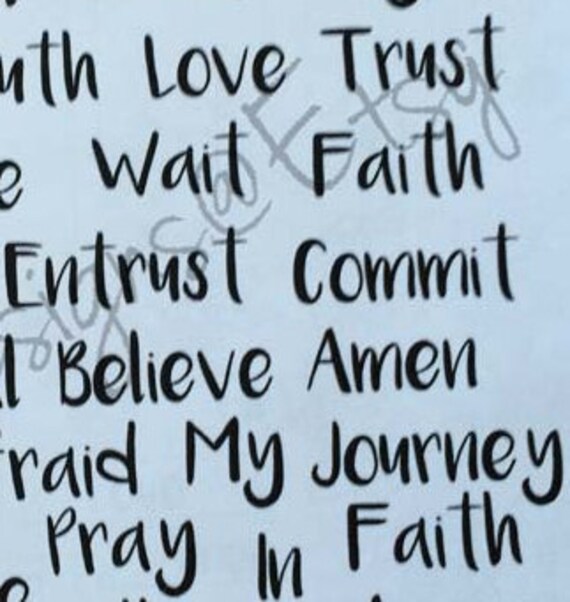 uth Love Trust
e Wait Faith
Entrust Commit
l Believe Amen
raid My Journey
Pray In Faith
signs@Etsy